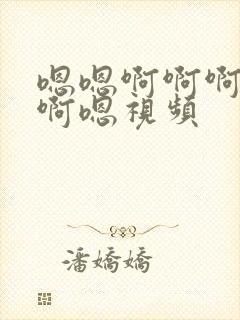 嗯嗯啊啊啊
啊嗯視頻
潘嬌嬌